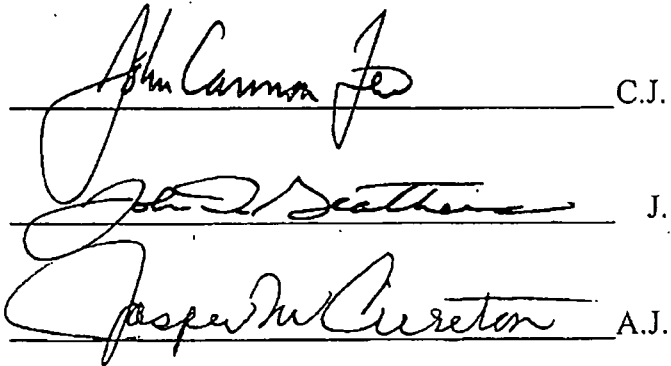 John Cannon Few C.J.
John D. Geathers J.
Jasper M. Cureton A.J.